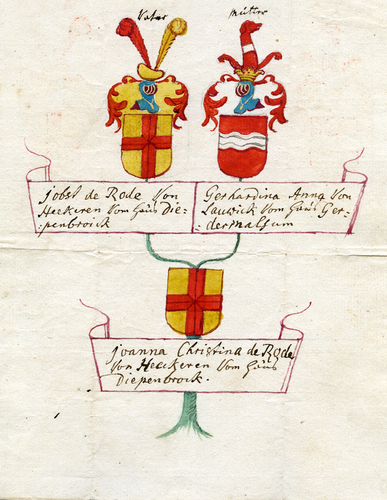 Vater
Mütter
jobst de Rode Von
Heekeren Vom Haüs Die-
-penbroick
Gerhardina Anna Von
Lauwick Vom Haüs Ger-
-dermalsum
joanna Christina de Rode
Von Heeckeren Vom Haüs
Diepenbrock.